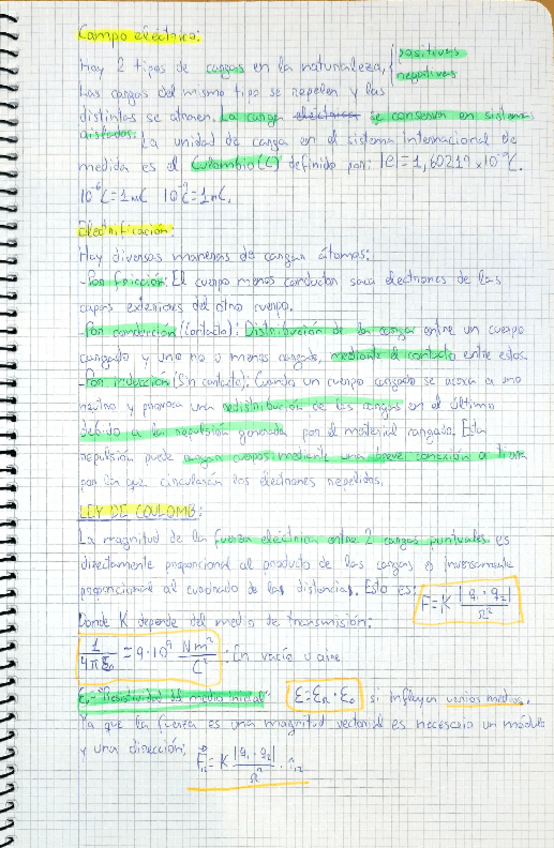 Campo eléctrico:
Hay 2 tipos de cargas en la naturaleza, { positivas
negativas
Las cargas del mismo tipo se repelen y las
distintas se atraen. La carga eléctrica se conserva en sistemas
aislados. La unidad de carga en el sistema internacional de
medida es el Culombio (C) definido por: 1e = 1,60217 × 10⁻¹⁹ C.
10⁻⁶C = 1μC 10⁻⁹C = 1nC.
Electrificación:
Hay diversas maneras de cargar átomos:
- Por fricción: El cuerpo menos conductor saca electrones de las
capas exteriores del otro cuerpo.
- Por conducción (Contacto): Distribución de la carga entre un cuerpo
cargado y uno no o menos cargado, mediante el contacto entre estos.
- Por inducción (Sin contacto): Cuando un cuerpo cargado se acerca a uno
neutro y provoca una redistribución de las cargas en el último
debido a la repulsión generada por el material cargado. Esta
repulsión puede cargar cuerpos mediante una breve conexión a tierra
por la que circularán los electrones repelidos.
LEY DE COULOMB:
La magnitud de la fuerza eléctrica entre 2 cargas puntuales es
directamente proporcional al producto de las cargas e inversamente
proporcional al cuadrado de las distancias. Esto es: F = K |q₁ · q₂| / r²
Donde K depende del medio de transmisión:
1 / 4πε₀ = 9·10⁹ Nm² / C² : En vacío o aire
ε₀ - "Resistividad del medio inicial" ε = εᵣ · ε₀ si influyen varios medios.
Ya que la fuerza es una magnitud vectorial es necesario un módulo
y una dirección: F⃗₁₂ = K |q₁ · q₂| / r² · r̂₁₂